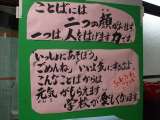 ことばには
二つの顔があります
一つは人をはげます力です。
いっしょにあそぼう。
「ごめんね」「いいよ 気にすんなよ」
こんなことばからは
元気がもらえます
学校が楽しくなります